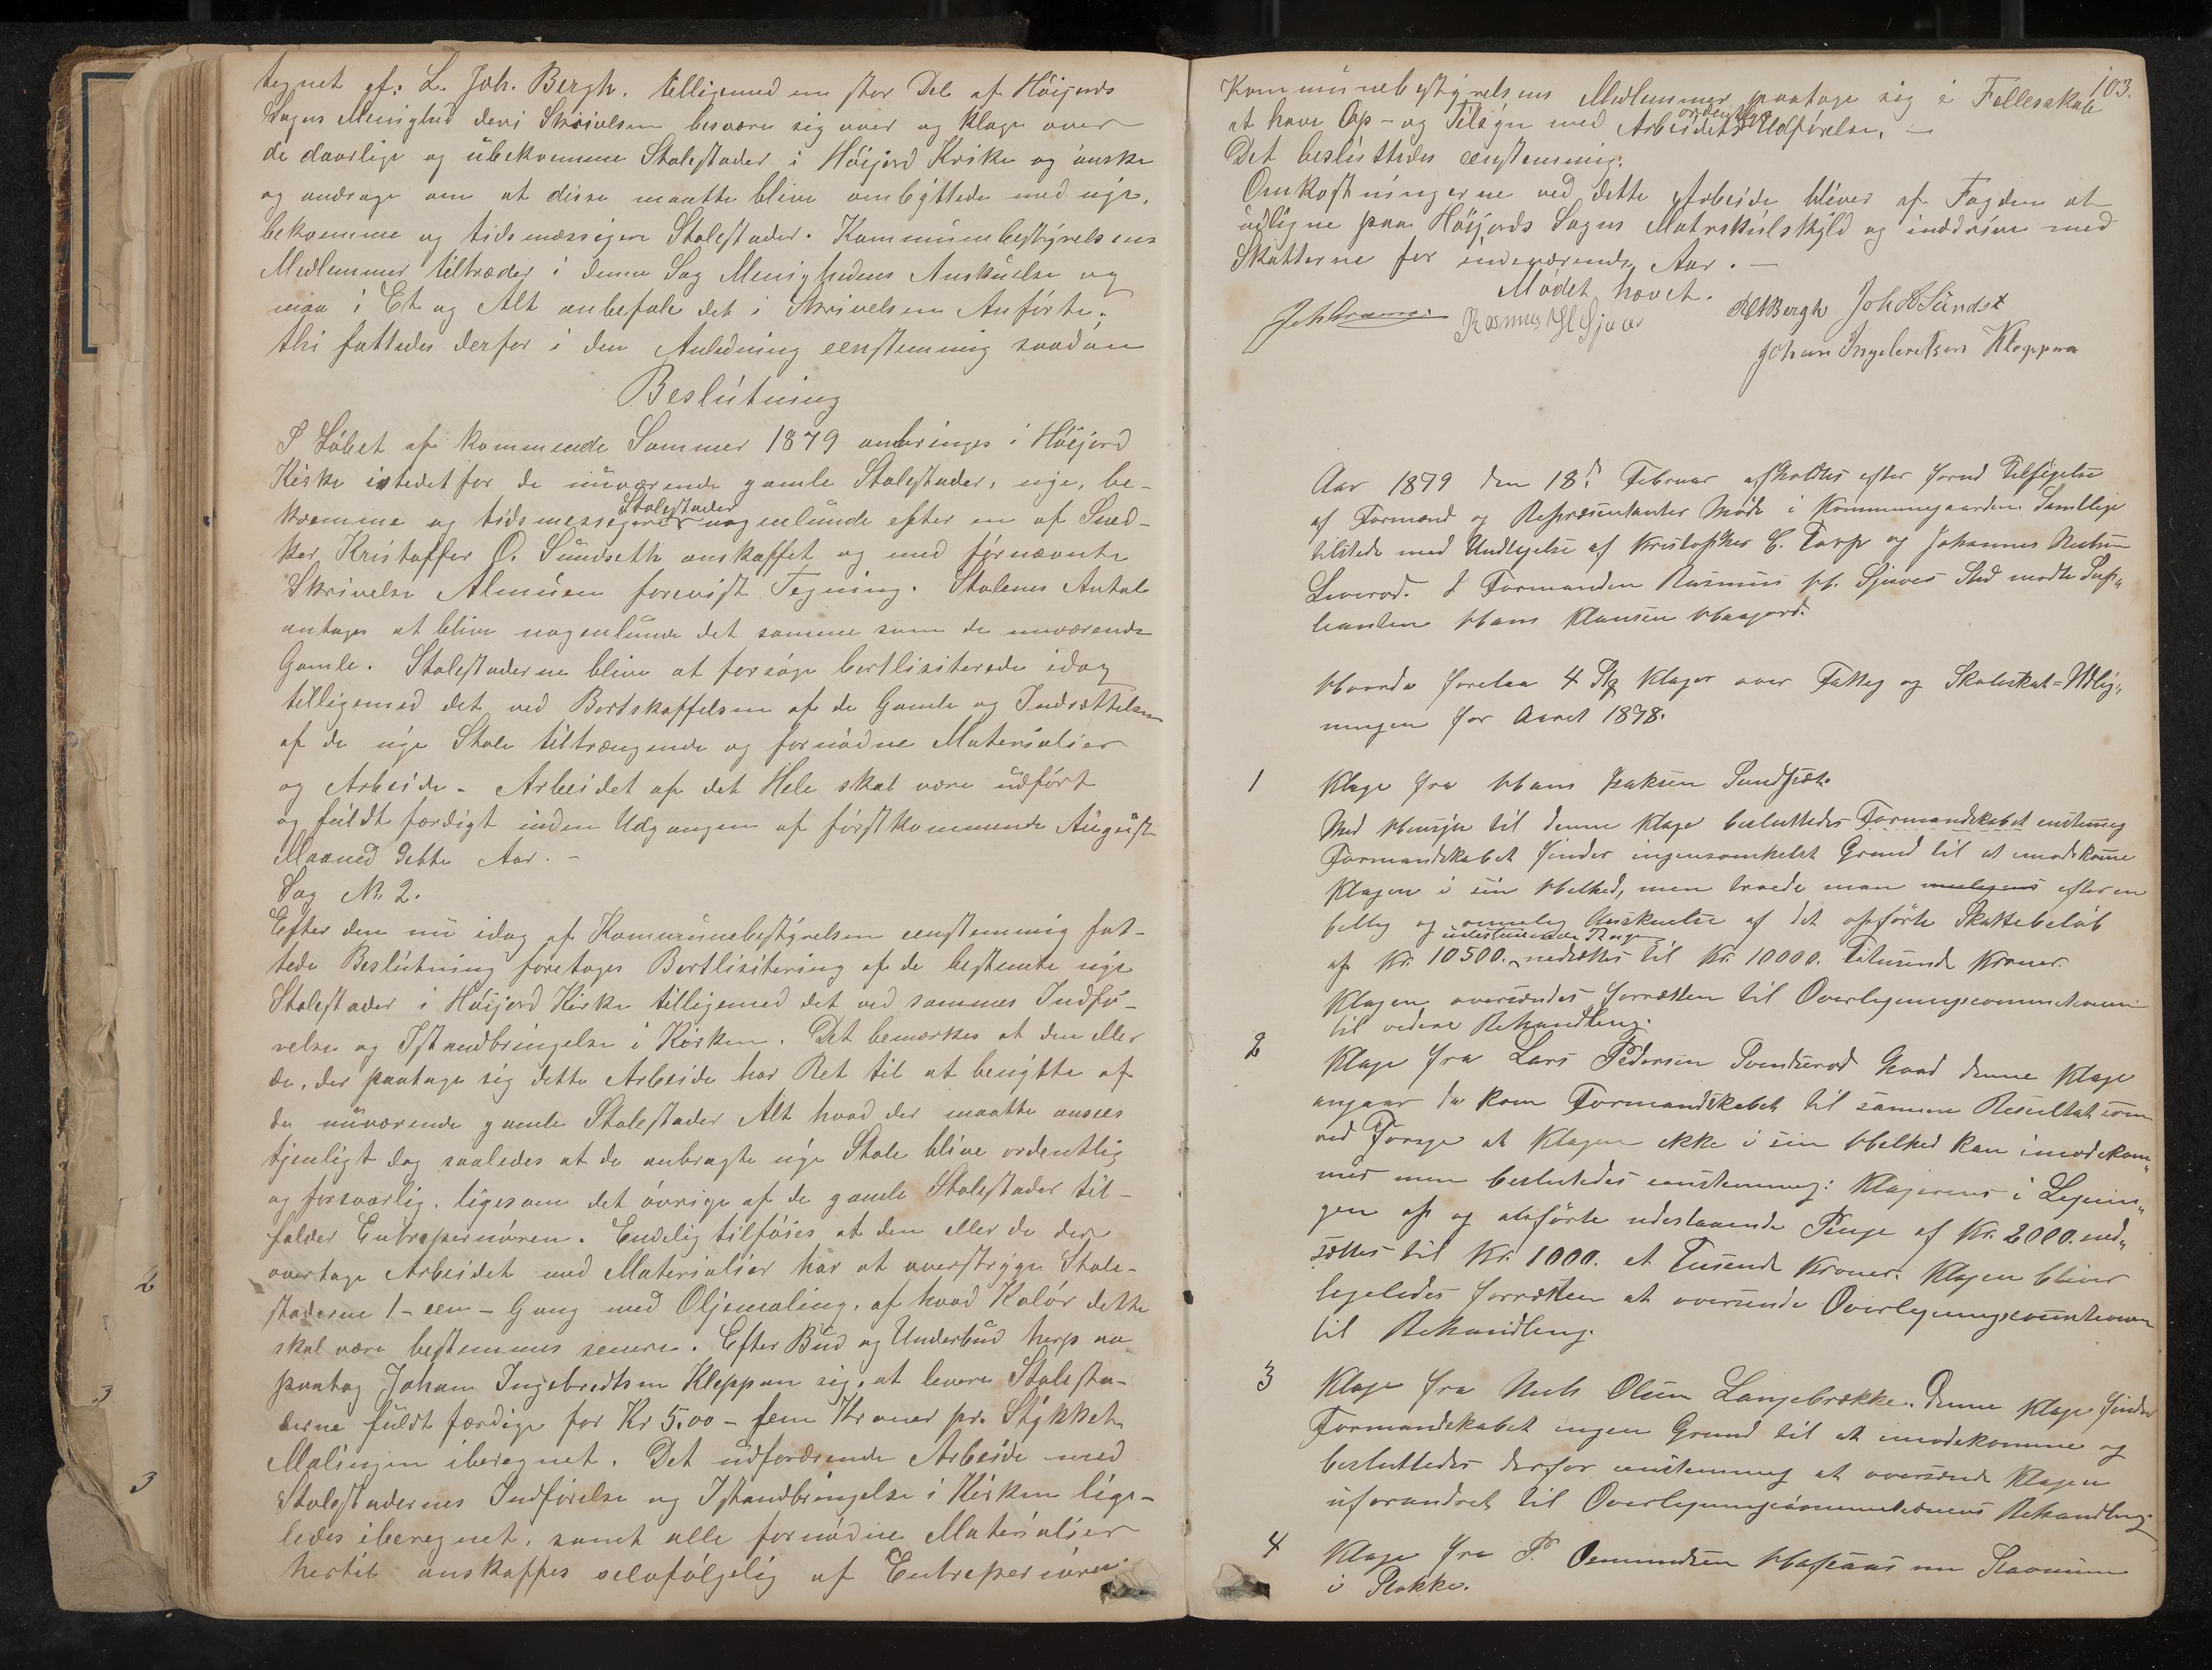 tegnet af: L. Joh. Bergh. tilligemed en stor Del af Höijords
Sogns Menighed deri Skrivelsen besvære sig over og klage over
de daarlige og ubekvemme Stolestader i Höijord Kirke og önske
og andrage om at disse maatte blive ombyttede med nye,
bekvemme og tidsmæssigere Stolestader. Kommunebestyrelsens
Medlemmer tiltræder i denne Sag Menighedens Anskuelse og
maa i Et og Alt anbefale det i Skrivelsen Anförte;
thi fattedes derfor i den Anledning eenstemmig saadan
Beslutning
I Löbet af kommende Sommer 1879 anbringes i Höijord
Kirke istedetfor de nuværende gamle Stolestader, nye, be-
kvemme og tidsmessigere Stolestader nogenlunde efter en af Sned-
ker Kristoffer O. Sundseth anskaffet og med förnævnte
Skrivelse Almuen forevist Tegning. Stolenes Antal
antages at blive nogenlunde det samme som de nuværende
Gamle. Stolestaderne blive at forsöge bortlisiterede idag
tilligemed det ved Bortskaffelsen af de Gamle og Indsættelsen
af de nye Stole tiltrængende og fornödne Materialier
og Arbeide. Arbeidet af det Hele skal være udfört
og fuldt færdigt inden Udgangen af förstkommende August
Maaned dette Aar. -
Sag No 2.
Efter den nu idag af Kommunebestyrelsen eenstemmig fat-
tede Beslutning foretages Bortlisitering af de bestemte nye
Stolestader i Höijord Kirke tilligemed det ved sammes Indfö-
relse og Istandbringelse i Kirken. Det bemærkes at den eller
de, der paatage sig dette Arbeide har Ret til at benytte af
de nuværende gamle Stolestader Alt hvad der maatte ansees
tjenligt dog saaledes at de anbragte nye Stole blive ordentlig
og forsvarlig, ligesom det övrige af de gamle Stolestader til-
falder Entrepernören. Endelig tilföies at den eller de der
overtage Arbeidet med Materialier har at overstryge Stole-
staderne 1 - een - Gang med Oljemaling, af hvad Kolör dette
skal være bestemmes senere. Efter Bud og Underbud herpaa
paatog Johan Ingebredtsen Kleppan sig, at levere Stolesta-
derne fuldt færdige for Kr 5,00 - fem Kroner pr. Stykket
Malingen iberegnet. Det udfordrende Arbeide med
Stolestadernes Indförelse og Istandbringelse i Kirken lige-
ledes iberegnet, samt alle fornödne Materialier
hertil anskaffes selvfölgelig af Entrepernören.
2
3
3
103.
Kommunebestyrelsens Medlemmer paatage sig i Fellesskab
at have Op- og Tilsyn med Arbeidets ordentlige Udförelse. -
Det besluttedes eenstemmig:
Omkostningerne ved dette Arbeide bliver af Fogden at
udligne paa Höijords Sogns Matrikulskyld og inddrive med
Skatterne for indeværende Aar. -
Mödet hævet.
Rasmus H Sjuve
Bergh Joh Sundst
Johan Ingebretsen Kleppan
Aar 1879 den 18de Februar afholdtes efter forud Tilsigelse
af Formænd og Repræsentanter Möde i Kommunegaarden. Samtlige
tilstede med Undtagelse af Kristopher C. Torp og Johannes Nielsen
Leverød. I Formanden Rasmus H. Sjuves Sted mødte Sup„
leanten Hans Klausen Haagard.
Hvorda forelaa 4 Stk Klager over Fattig og Skoleskat-Udlig„
ningen for Aaret 1878.
1 Klage fra Hans Isaksen Sundset.
Med Hensyn til denne Klage besluttedes Formandskabet enstemig
Formandskabet finder ingensomhelst Grund til at imødekome
Klagen i sin Helhed, men troede man efter en
billig og rimelig Anskuelse af det opförte Skattebeløb
af Kr. 10500. udestaaende Penge nedsættes til Kr. 10000. Titusende Kroner.
Klagen oversendes forretten til Overligningscommisionen
til videre Behandling.
2 Klage fra Lars Pedersen Svendserød hvad denne Klage
angaar da kom Formandskabet til samme Resultat som
ved Forrige at Klagen ikke i sin Helhed kan imødekom„
mes men besluttedes enstemmig: Klagerens i Lignin„
gen op og anførte udestaaende Penge af Kr. 2000. ned„
sættes til Kr. 1000. et Tusende Kroner. Klagen bliver
ligeledes forretten at oversende Overligningscomisionen
til Behandling.
3 Klage fra Niels Olsen Langebrække. Denne Klage finder
Formandskabet ingen Grund til at imødekomme og
besluttedes derfor enstemmig at oversende Klagen
uforandret til Overligningscommisionens Behandling.
4 Klage fra P. Oemundsen Hafsaas nu Stavnum
i Stokke.